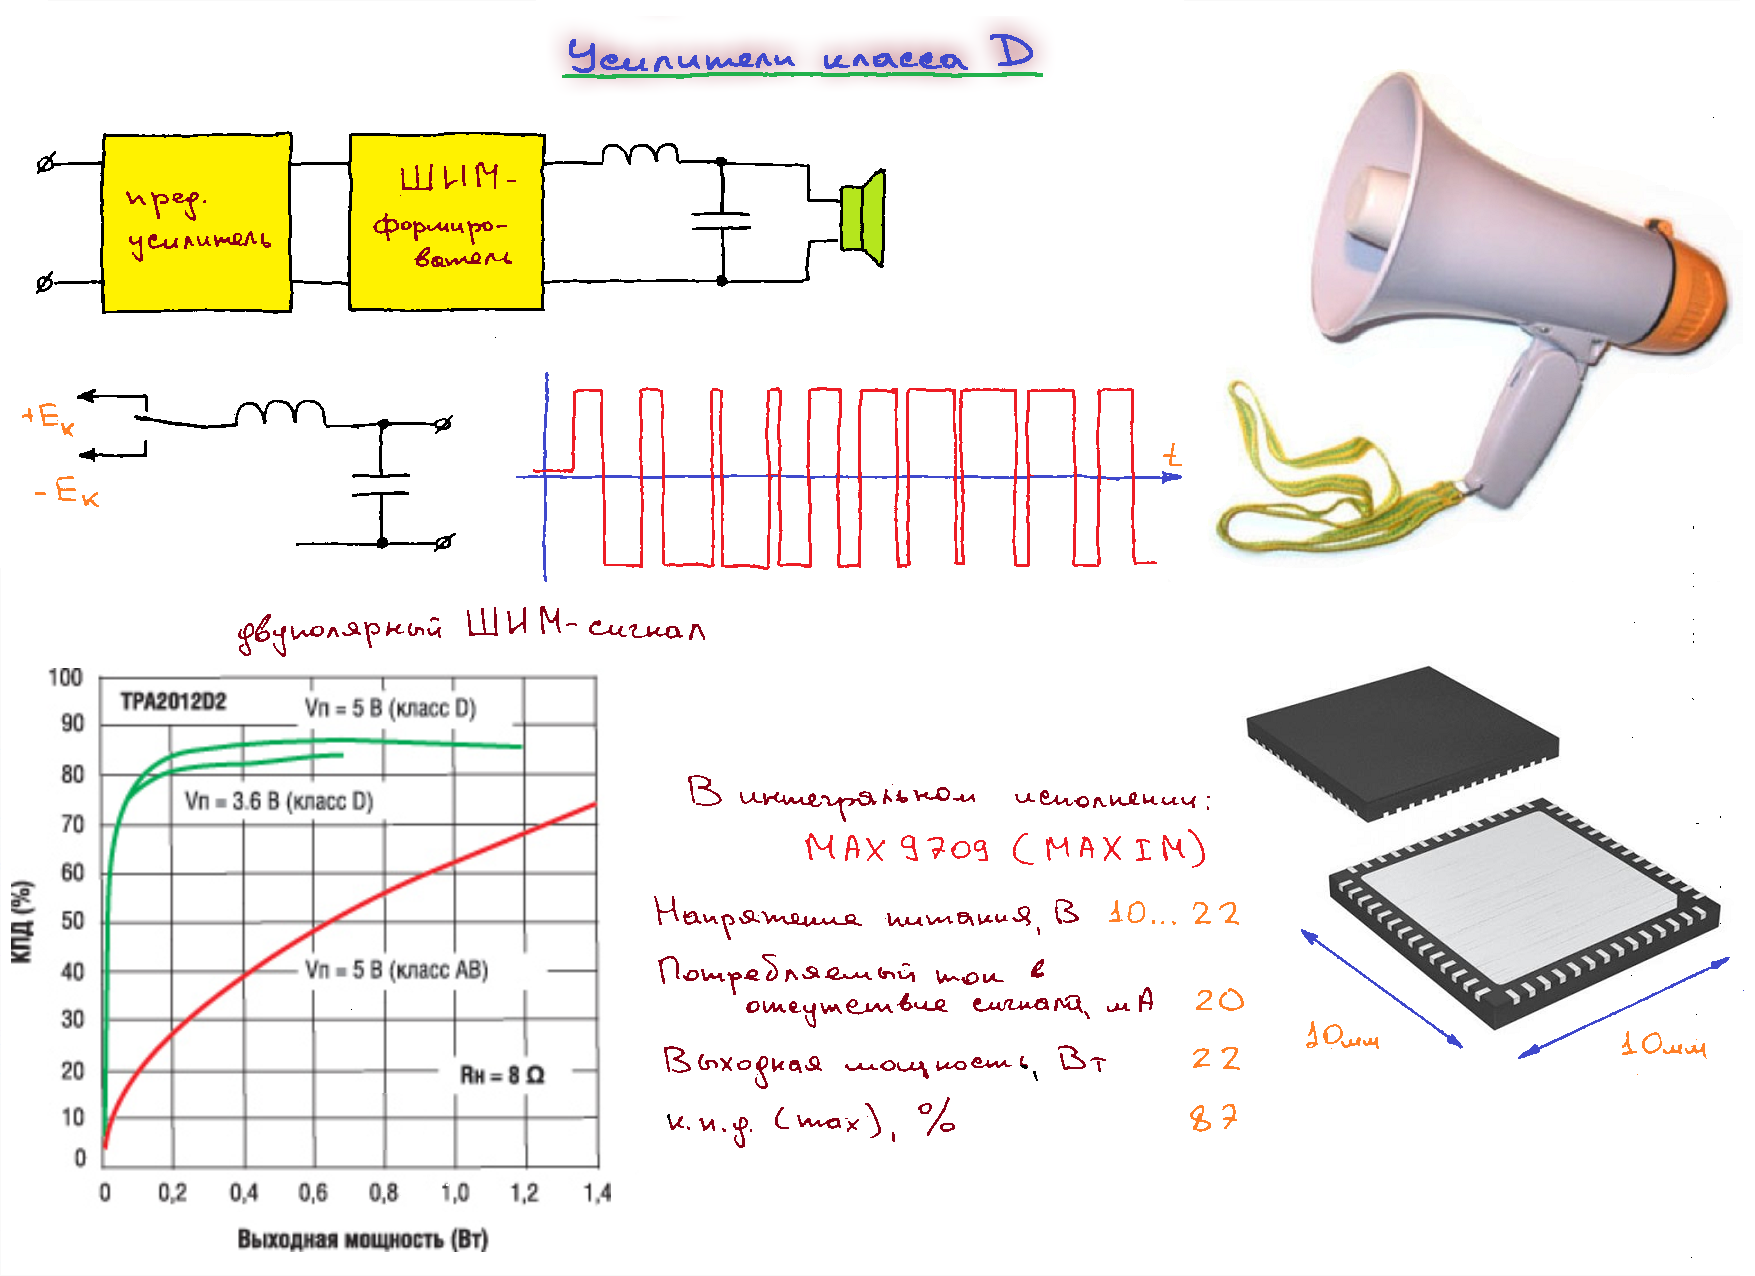 Усилители класса D
пред.
усилитель
ШИМ-
формиро-
ватель
+Eк
-Eк
t
двуполярный ШИМ-сигнал
TPA2012D2
Vп = 5 В (класс D)
Vп = 3.6 В (класс D)
Vп = 5 В (класс AB)
Rн = 8 Ω
КПД (%)
100
90
80
70
60
50
40
30
20
10
0
0 0,2 0,4 0,6 0,8 1,0 1,2 1,4
Выходная мощность (Вт)
В интегральном исполнении:
MAX9709 (MAXIM)
Напряжение питания, В 10...22
Потребляемый ток в
отсутствие сигнала, мА 20
Выходная мощность, Вт 22
к.п.д. (max), % 87
10мм
10мм